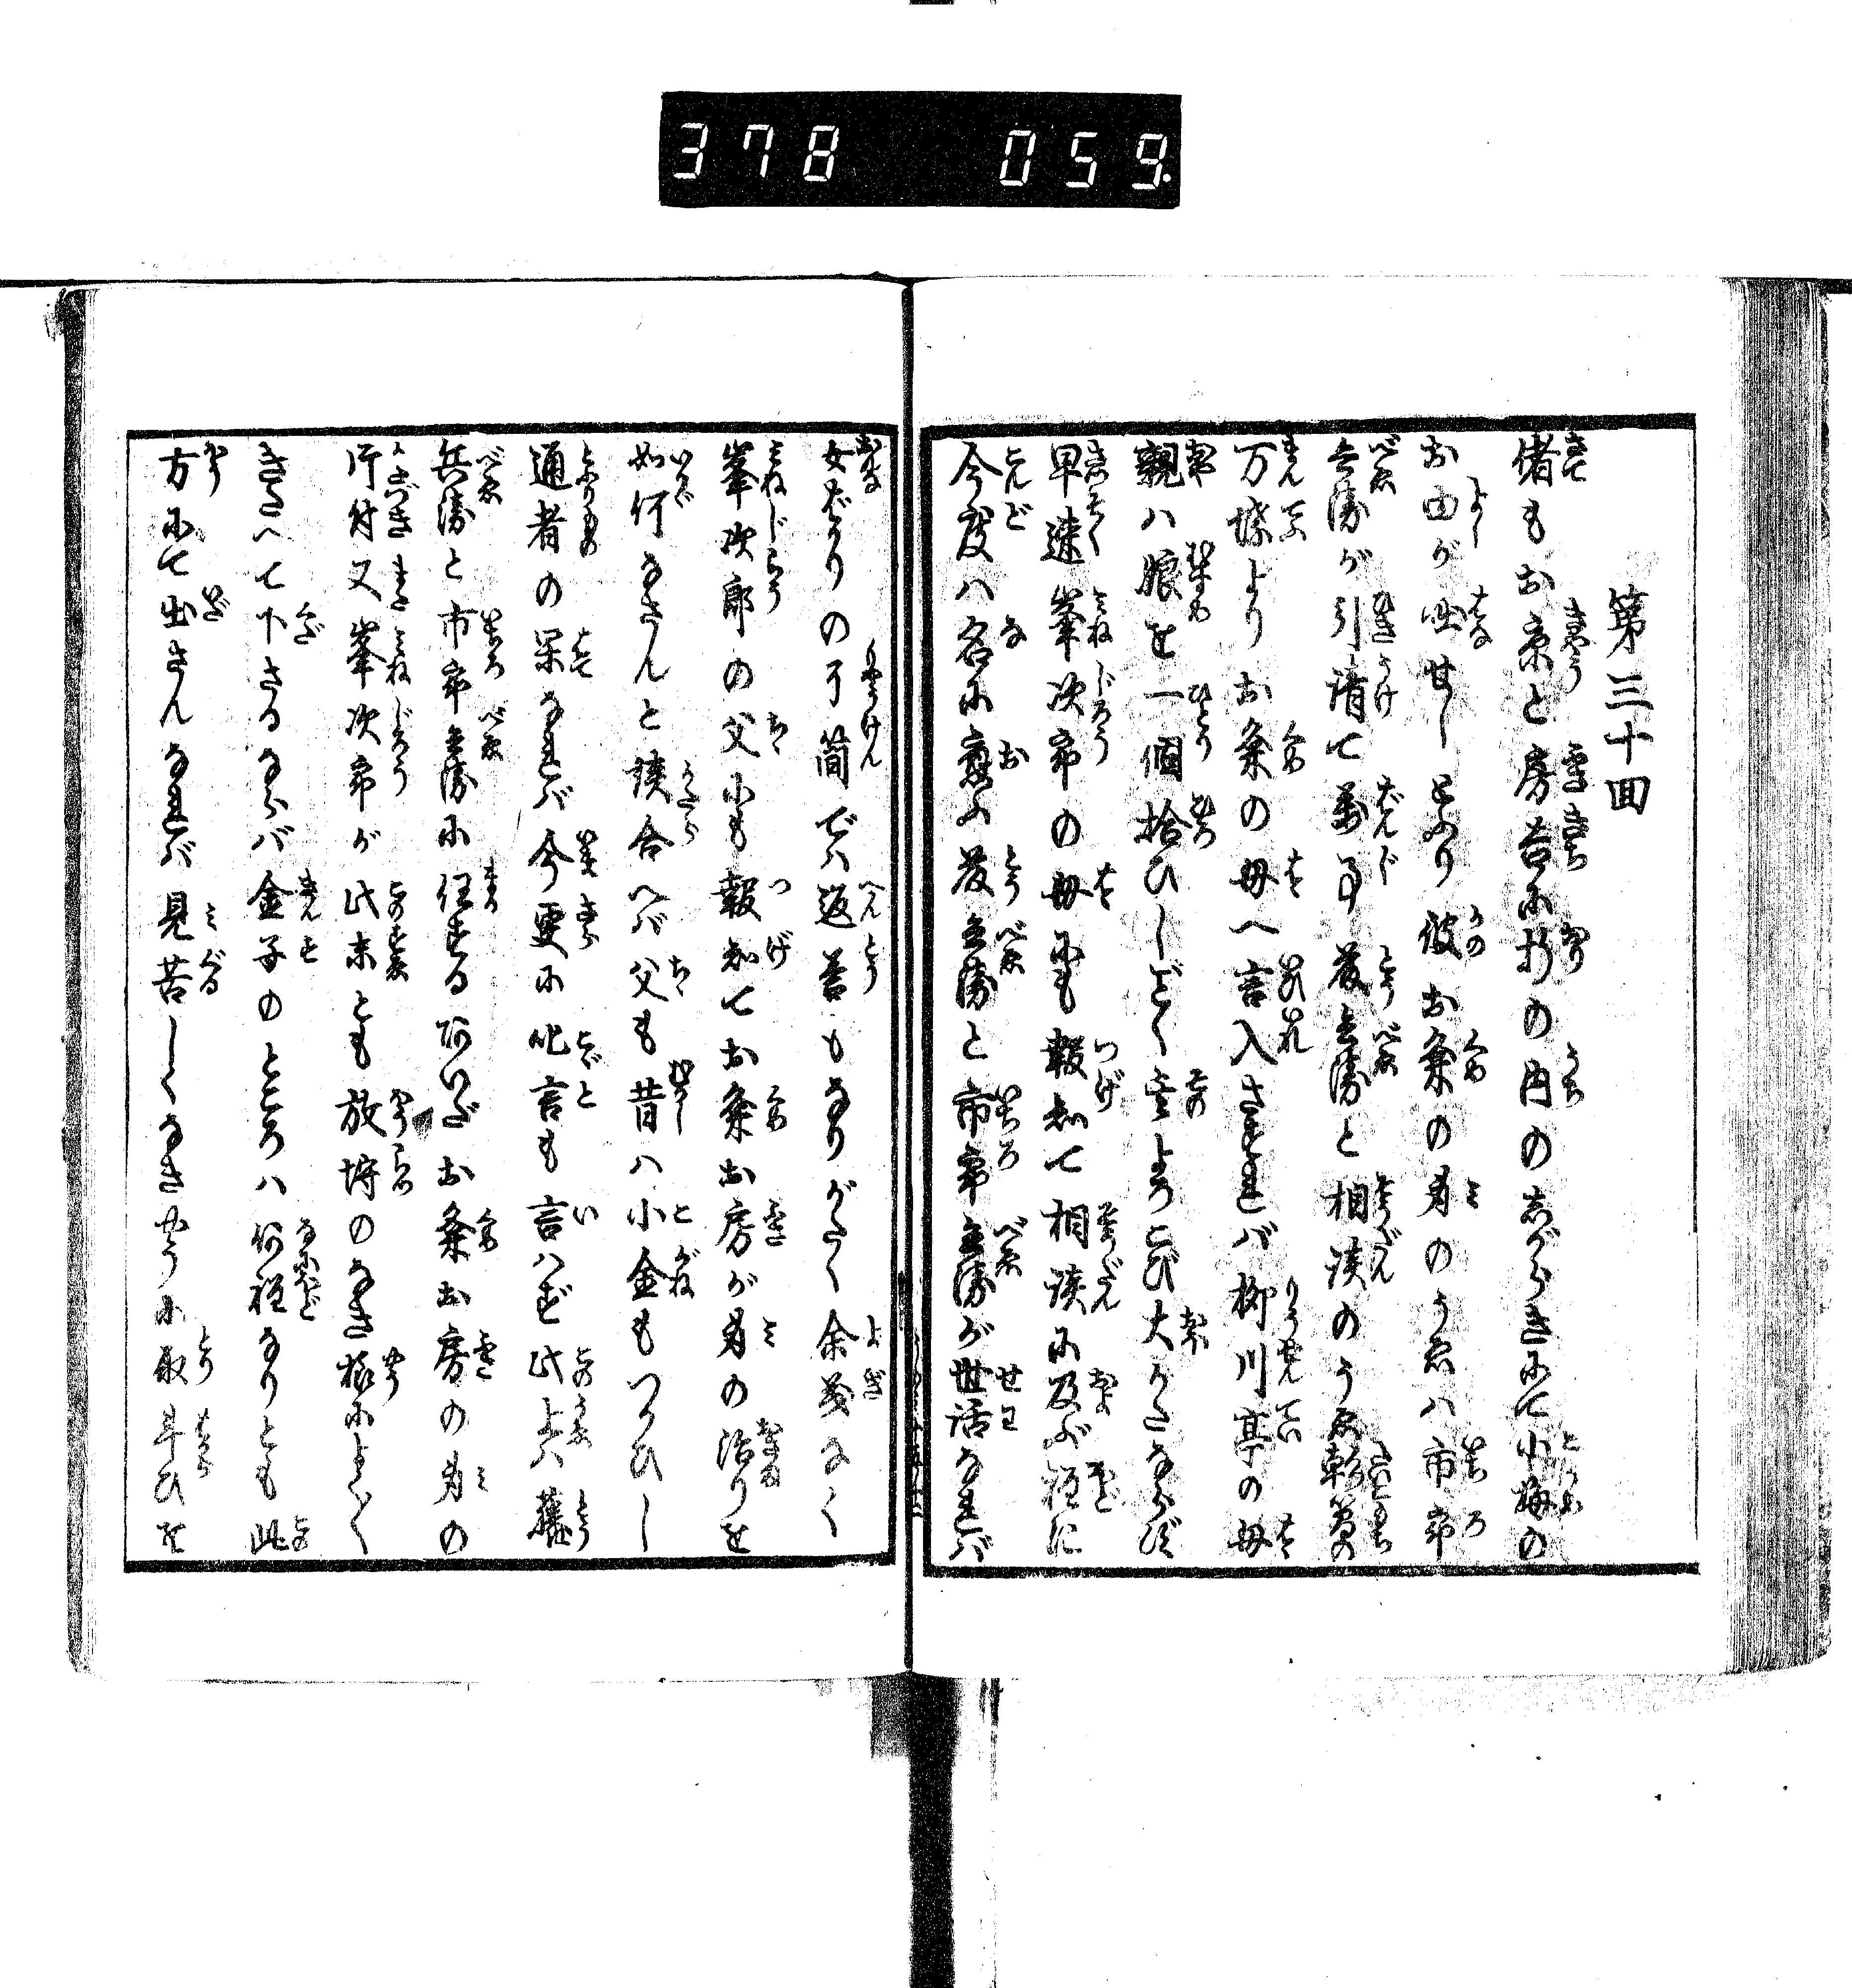 378 059.
第三十回
偖もお京と房吉に折の内のしがらきにて小梅の
お由が咄せしより彼お粂の身のうへハ市郎
兵衛が引請て萬事藤兵衛と相談のうへ
万塚よりお粂の母へ言入されバ柳川亭の母
親ハ娘を一個拾ひしごとくよろこび大かたならず
早速峯次郎の母にも報知て相談に及ぶ程に
今度ハ名に應ふ藤兵衛と市郎兵衛が世話なれバ
女ばかりの了簡でハ返答もなりがたく余義なく
峯次郎の父にも報知てお粂お房が身の治りを
如何なさんと談合へバ父も昔ハ小金もつかひし
通者の果なれバ今更に叱言も言ハず此上ハ藤
兵衛と市郎兵衛に任するあいだお粂お房の身の
片付又峯次郎が此末とも放埒のなき様によく〳〵
きめへて下さるならバ金子のところハ何程なりとも此
方にて出さんなれバ見苦しくなきやうに取斗ひを